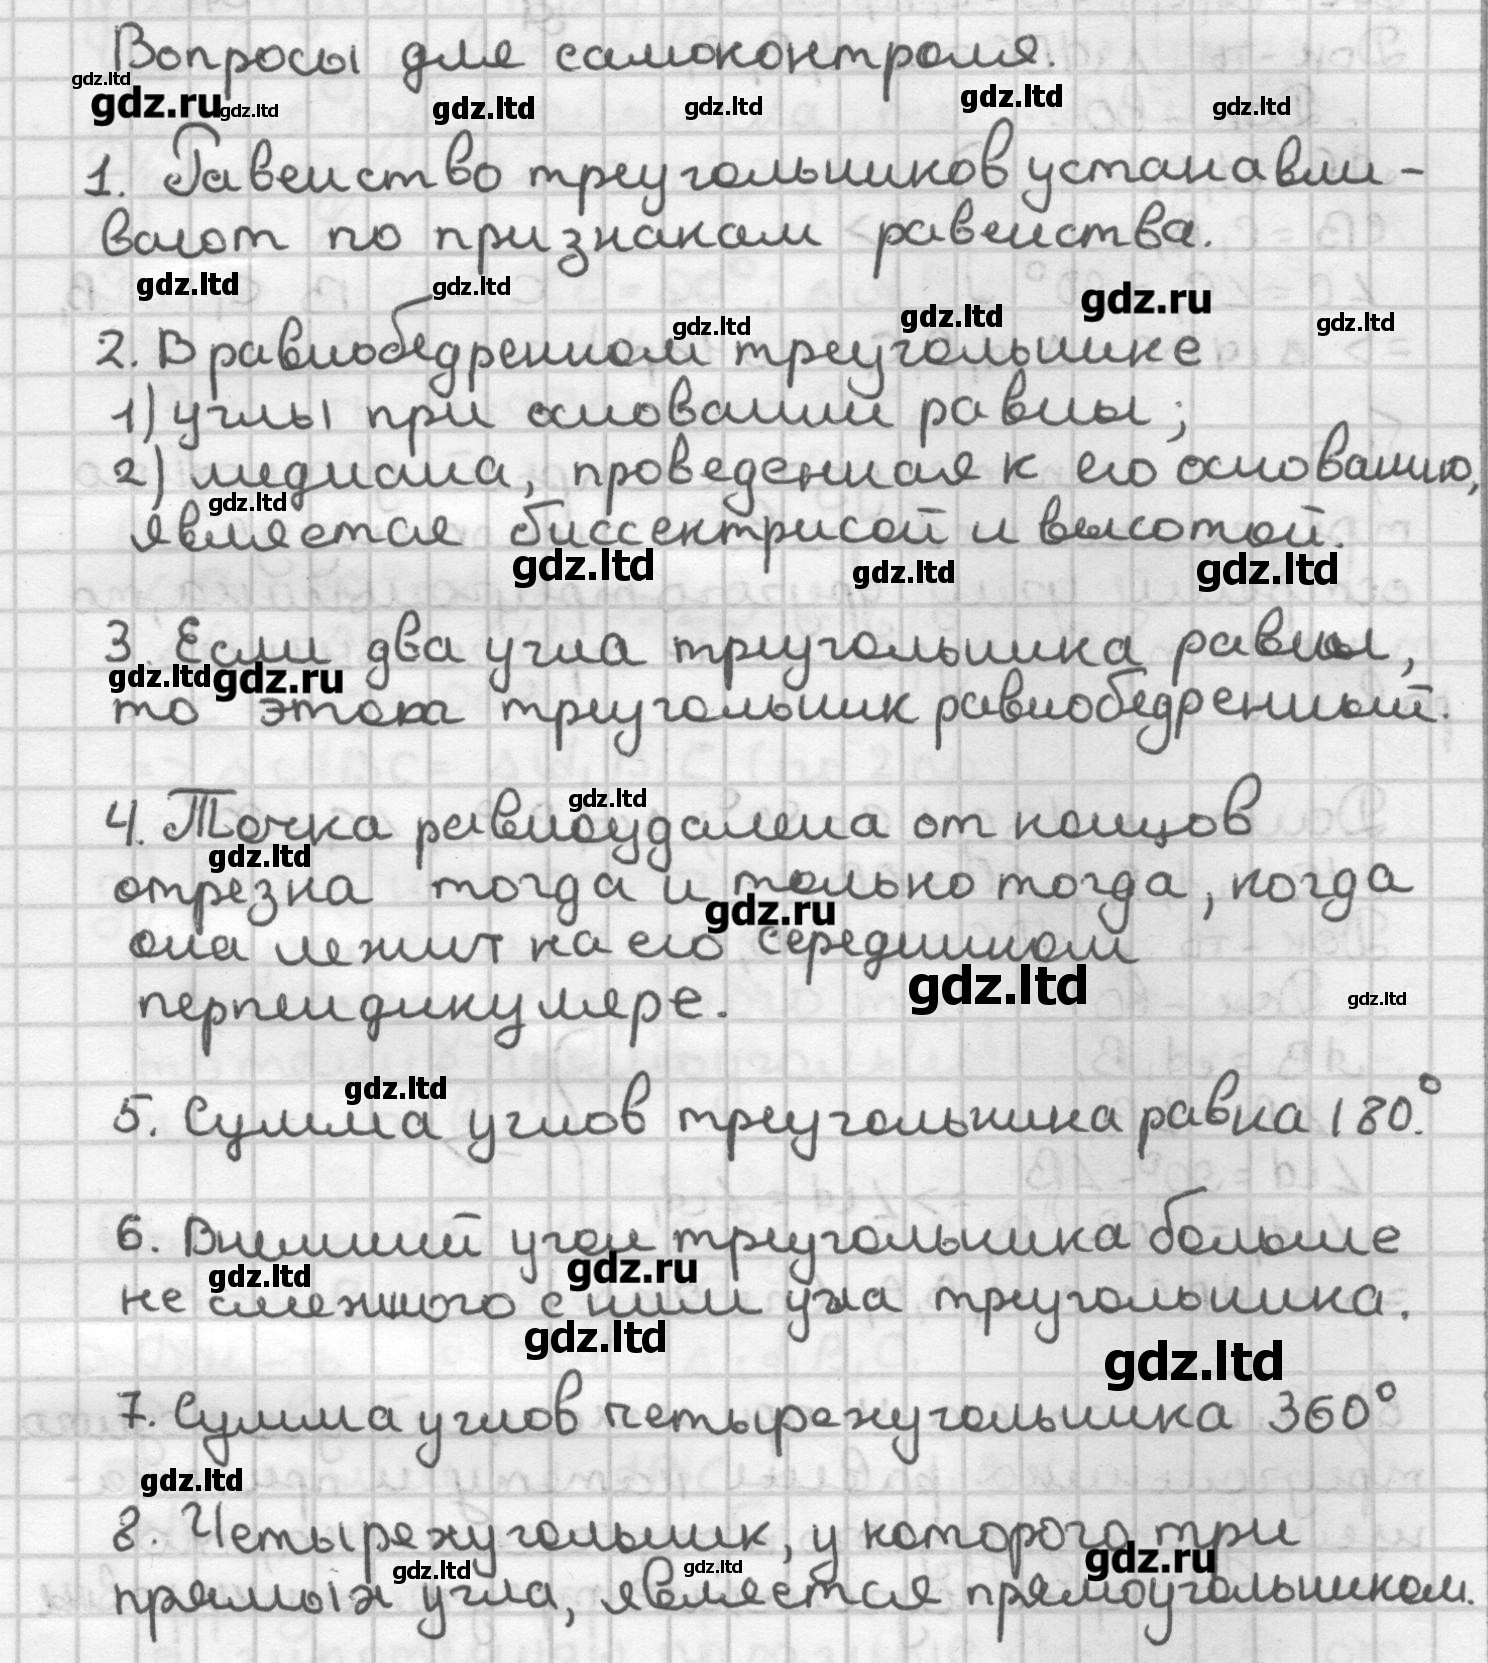 Вопросы для самоконтроля.
gdz.ltd
gdz.ru gdz.ltd gdz.ltd gdz.ltd gdz.ltd gdz.ltd
1. Равенство треугольников устанавли-
вают по признакам равенства.
gdz.ltd gdz.ltd gdz.ru
gdz.ltd gdz.ltd gdz.ltd
2. В равнобедренном треугольнике
1) углы при основании равны;
2) медиана, проведенная к его основанию,
gdz.ltd
является биссектрисой и высотой.
gdz.ltd gdz.ltd gdz.ltd
3. Если два угла треугольника равны,
gdz.ltd gdz.ru
то треугольник равнобедренный.
gdz.ltd
4. Точка равноудалена от концов
gdz.ltd
отрезка тогда и только тогда, когда
gdz.ru
она лежит на его серединном
gdz.ltd gdz.ltd
перпендикуляре.
gdz.ltd
5. Сумма углов треугольника равна 180°.
6. Внешний угол треугольника больше
gdz.ltd gdz.ru
не смежного с ним угла треугольника.
gdz.ltd gdz.ltd
7. Сумма углов четырехугольника 360°
gdz.ltd
8. Четырехугольник, у которого три
gdz.ltd gdz.ltd gdz.ru
прямых угла, является прямоугольником.